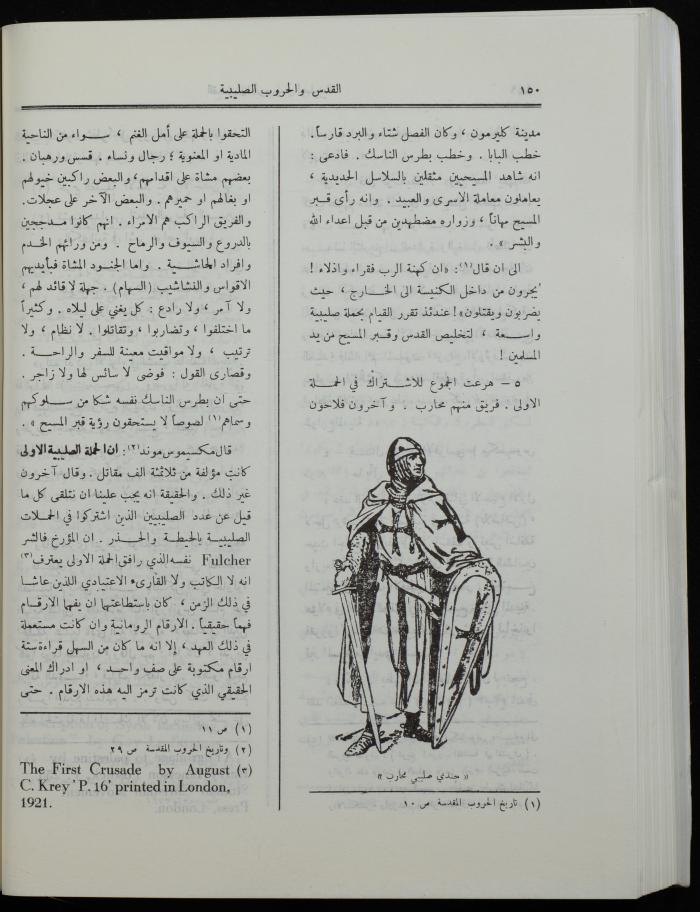 ١٥٠
القدس والحروب الصليبية
مدينة كليرمون ، وكان الفصل شتاء والبرد قارساً.
خطب البابا . وخطب بطرس الناسك . فادعى :
انه شاهد المسيحيين مثقلين بالسلاسل الحديدية ،
يعاملون معاملة الاسرى والعبيد . وانه رأى قبر
المسيح مهاناً ، وزواره مضطهدين من قبل اعداء الله
والبشر » .
الى ان قال(١): «ان كهنة الرب فقراء واذلاء !
يجرون من داخل الكنيسة الى الخارج ، حيث
يضربون ويقتلون»! عندئذ تقرر القيام بحملة صليبية
واسعة ، لتخليص القدس وقبر المسيح من يد
المسلمين !
٥ – هرعت الجموع للاشتراك في الحملة
الاولى . فريق منهم محارب . وآخرون فلاحون
« جندي صليبي محارب »
(١) تاريخ الحروب المقدسة ص ١٠
التحقوا بالحملة على أمل الغنم ، سواء من الناحية
المادية او المعنوية ؛ رجال ونساء . قسس ورهبان .
بعضهم مشاة على اقدامهم، والبعض راكبين خيولهم
او بغالهم او حميرهم . والبعض الآخر على عجلات.
والفريق الراكب هم الامراء . انهم كانوا مدججين
بالدروع والسيوف والرماح . ومن ورائهم الخدم
وافراد الحاشية . واما الجنود المشاة فبأيديهم
الاقواس والفشاشيب (السهام) . جهلة لا قائد لهم ،
ولا آمر ، ولا رادع : كل يغني على ليلاه . وكثيراً
ما اختلفوا ، وتضاربوا ، وتقاتلوا . لا نظام ، ولا
ترتيب ، ولا مواقيت معينة للسفر والراحة .
وقصارى القول : فوضى لا سائس لها ولا زاجر .
حتى ان بطرس الناسك نفسه شكا من سلوكهم
وسماهم(١) لصوصاً لا يستحقون رؤية قبر المسيح » .
قال مكسيموس موند(٢): ان الحملة الصليبية الاولى
كانت مؤلفة من ثلاثمئة الف مقاتل . وقال آخرون
غير ذلك . والحقيقة انه يجب علينا ان نتلقى كل ما
قيل عن عدد الصليبيين الذين اشتركوا في الحملات
الصليبية بالحيطة والحذر . ان المؤرخ فالشر
Fulcher نفسه الذي رافق الحملة الاولى يعترف(٣)
انه لا الكاتب ولا القارىء الاعتيادي اللذين عاشا
في ذلك الزمن ، كان باستطاعتها ان يفهما الارقام
فهماً حقيقياً . الارقام الرومانية وان كانت مستعملة
في ذلك العهد ، إلا انه ما كان من السهل قراءة ستة
ارقام مكتوبة على صف واحد ، او ادراك المعنى
الحقيقي الذي كانت ترمز اليه هذه الارقام . حتى
(١) ص ١١
(٢) وتاريخ الحروب المقدسة ص ٢٩
(٣) The First Crusade by August
C. Krey ' P. 16' printed in London,
1921.